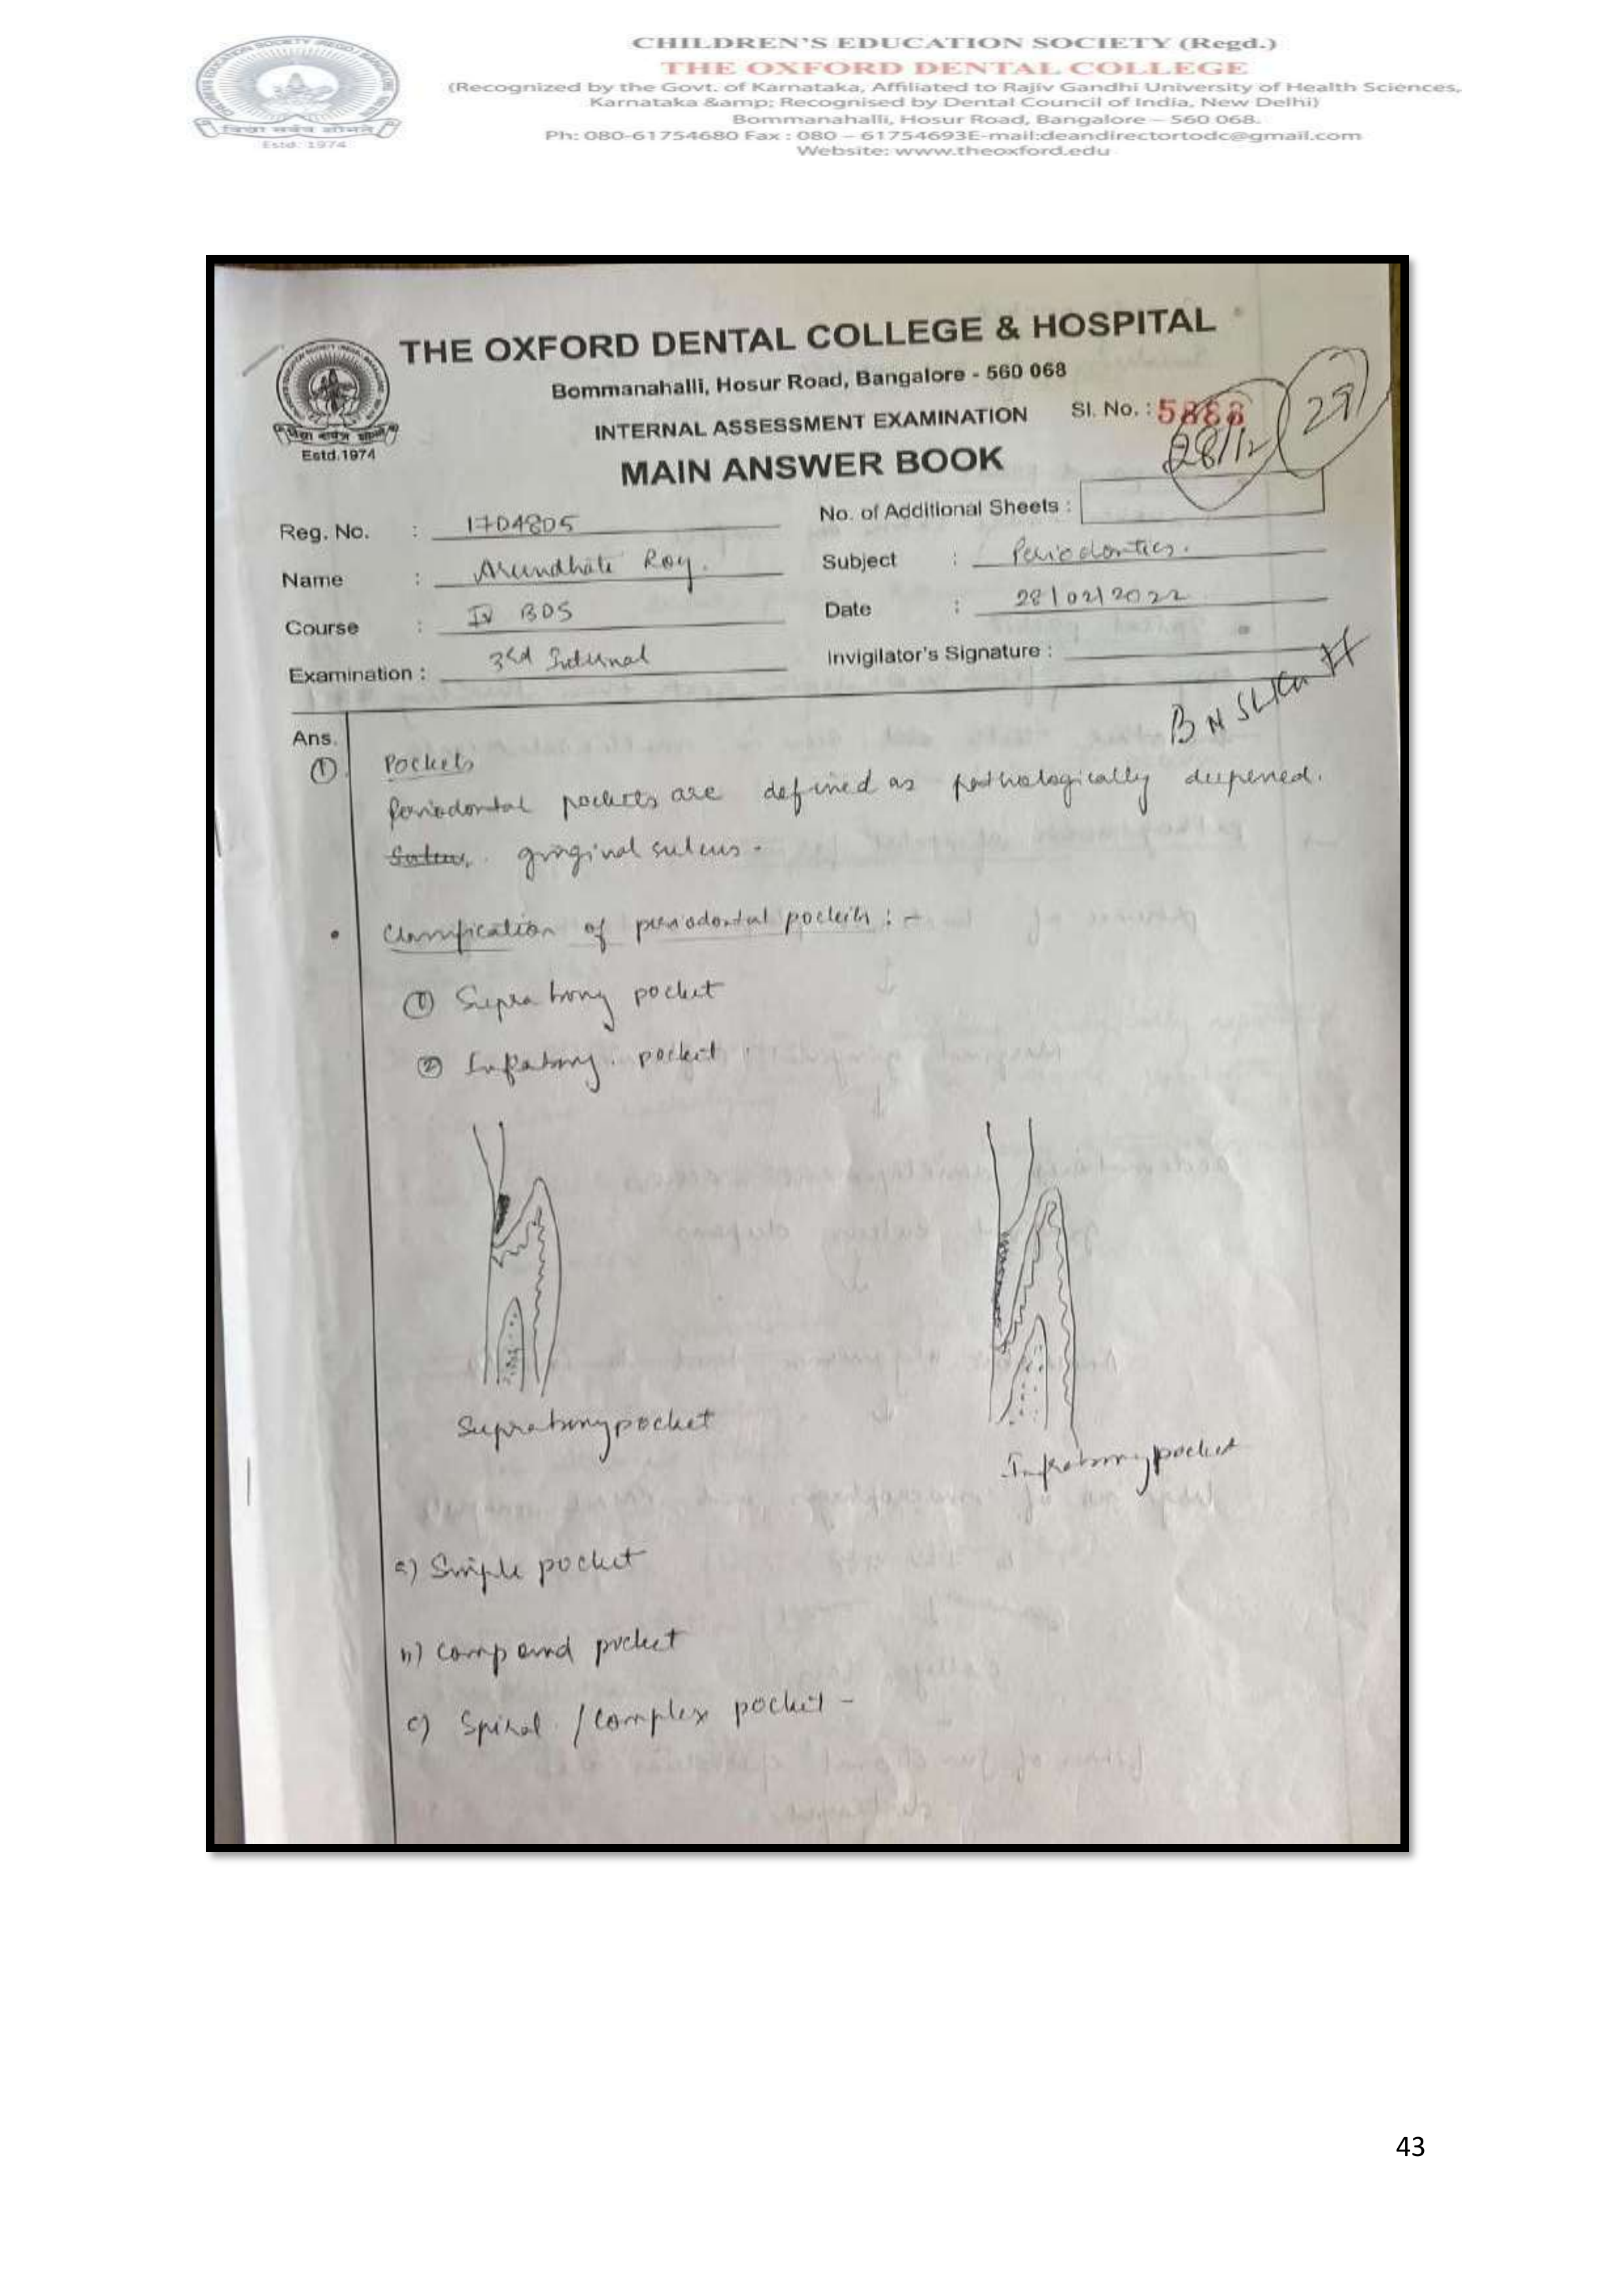 CHILDREN'S EDUCATION SOCIETY (Regd.)
THE OXFORD DENTAL COLLEGE
(Recognized by the Govt. of Karnataka, Affiliated to Rajiv Gandhi University of Health Sciences,
Karnataka &amp; Recognised by Dental Council of India, New Delhi)
Bommanahalli, Hosur Road, Bangalore – 560 068.
Ph: 080-61754680 Fax : 080 – 61754693E-mail:deandirectortodc@gmail.com
Website: www.theoxford.edu
Estd. 1974
THE OXFORD DENTAL COLLEGE & HOSPITAL
Bommanahalli, Hosur Road, Bangalore - 560 068
INTERNAL ASSESSMENT EXAMINATION Sl. No. : 5888
Estd.1974
MAIN ANSWER BOOK
28/12
Reg. No. : 1704805 No. of Additional Sheets :
Name : Arundhati Roy. Subject : Periodontics.
Course : IV BDS Date : 28/02/2022
Examination : 3rd Internal Invigilator's Signature :
Ans.
① Pockets
Periodontal pockets are defined as pathologically deepened.
Sulcus. gingival sulcus.
• Classification of periodontal pockets : -
① Suprabony pocket
② Infrabony. pocket
Suprabony pocket
Infrabony pocket
a) Simple pocket
b) compound pocket
c) Spiral / complex pocket -
43